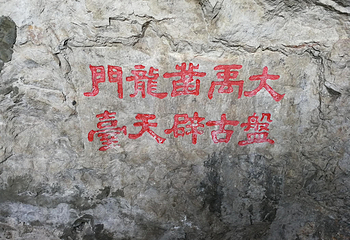 大禹凿龍門
盤古辟天臺